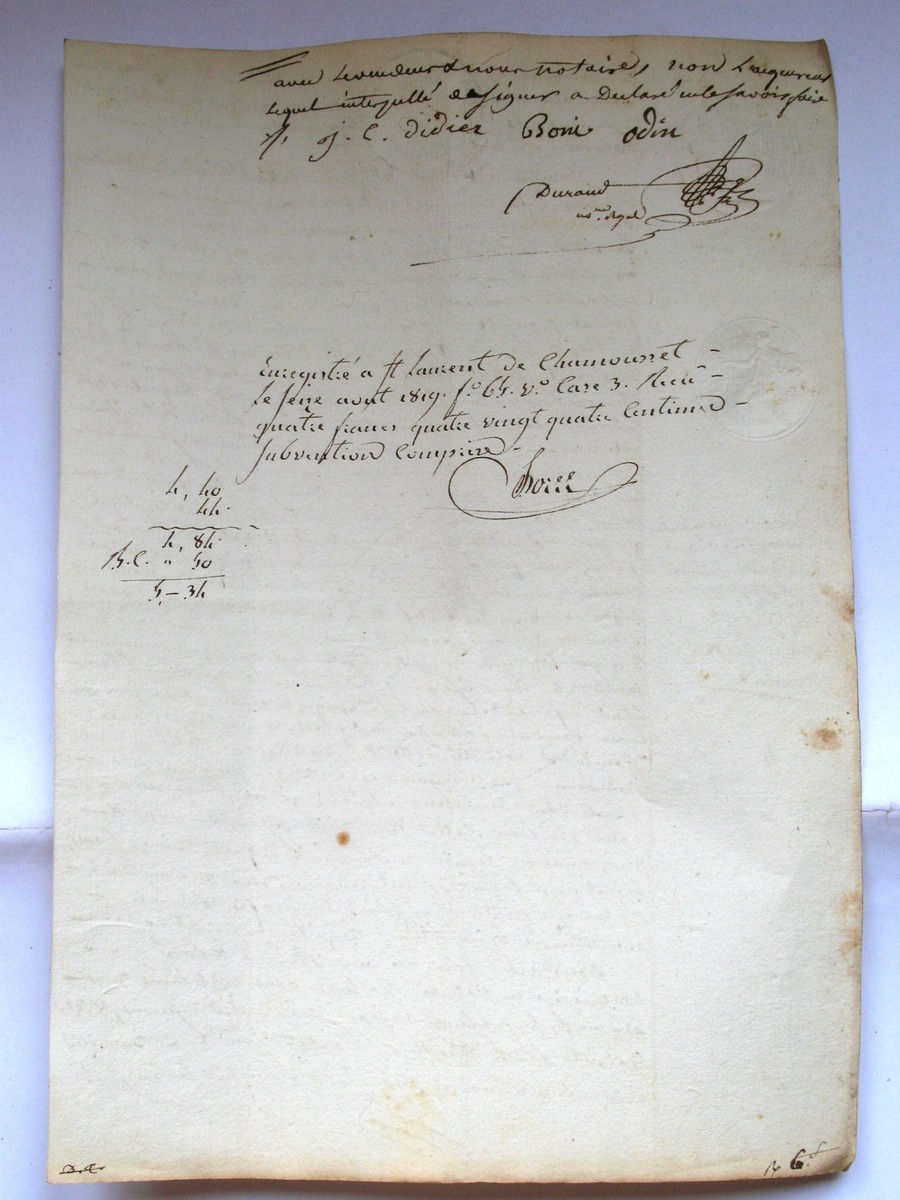 avec le vendeur & nous notaire, non l'acquereur
lequel interpellé de signer a Declaré ne le savoir faire
J. C. Didier Boni Odin
Durand
no.re Royal
Enregistré a St Laurent de Chamousset -
le seize aout 1819. f.o 65. v.o Case 3. Recu -
quatre francs quatre vingt quatre Centimes -
subvention Comprise -
4, 40
44.
4, 84.
" 50
5 - 34
6.f